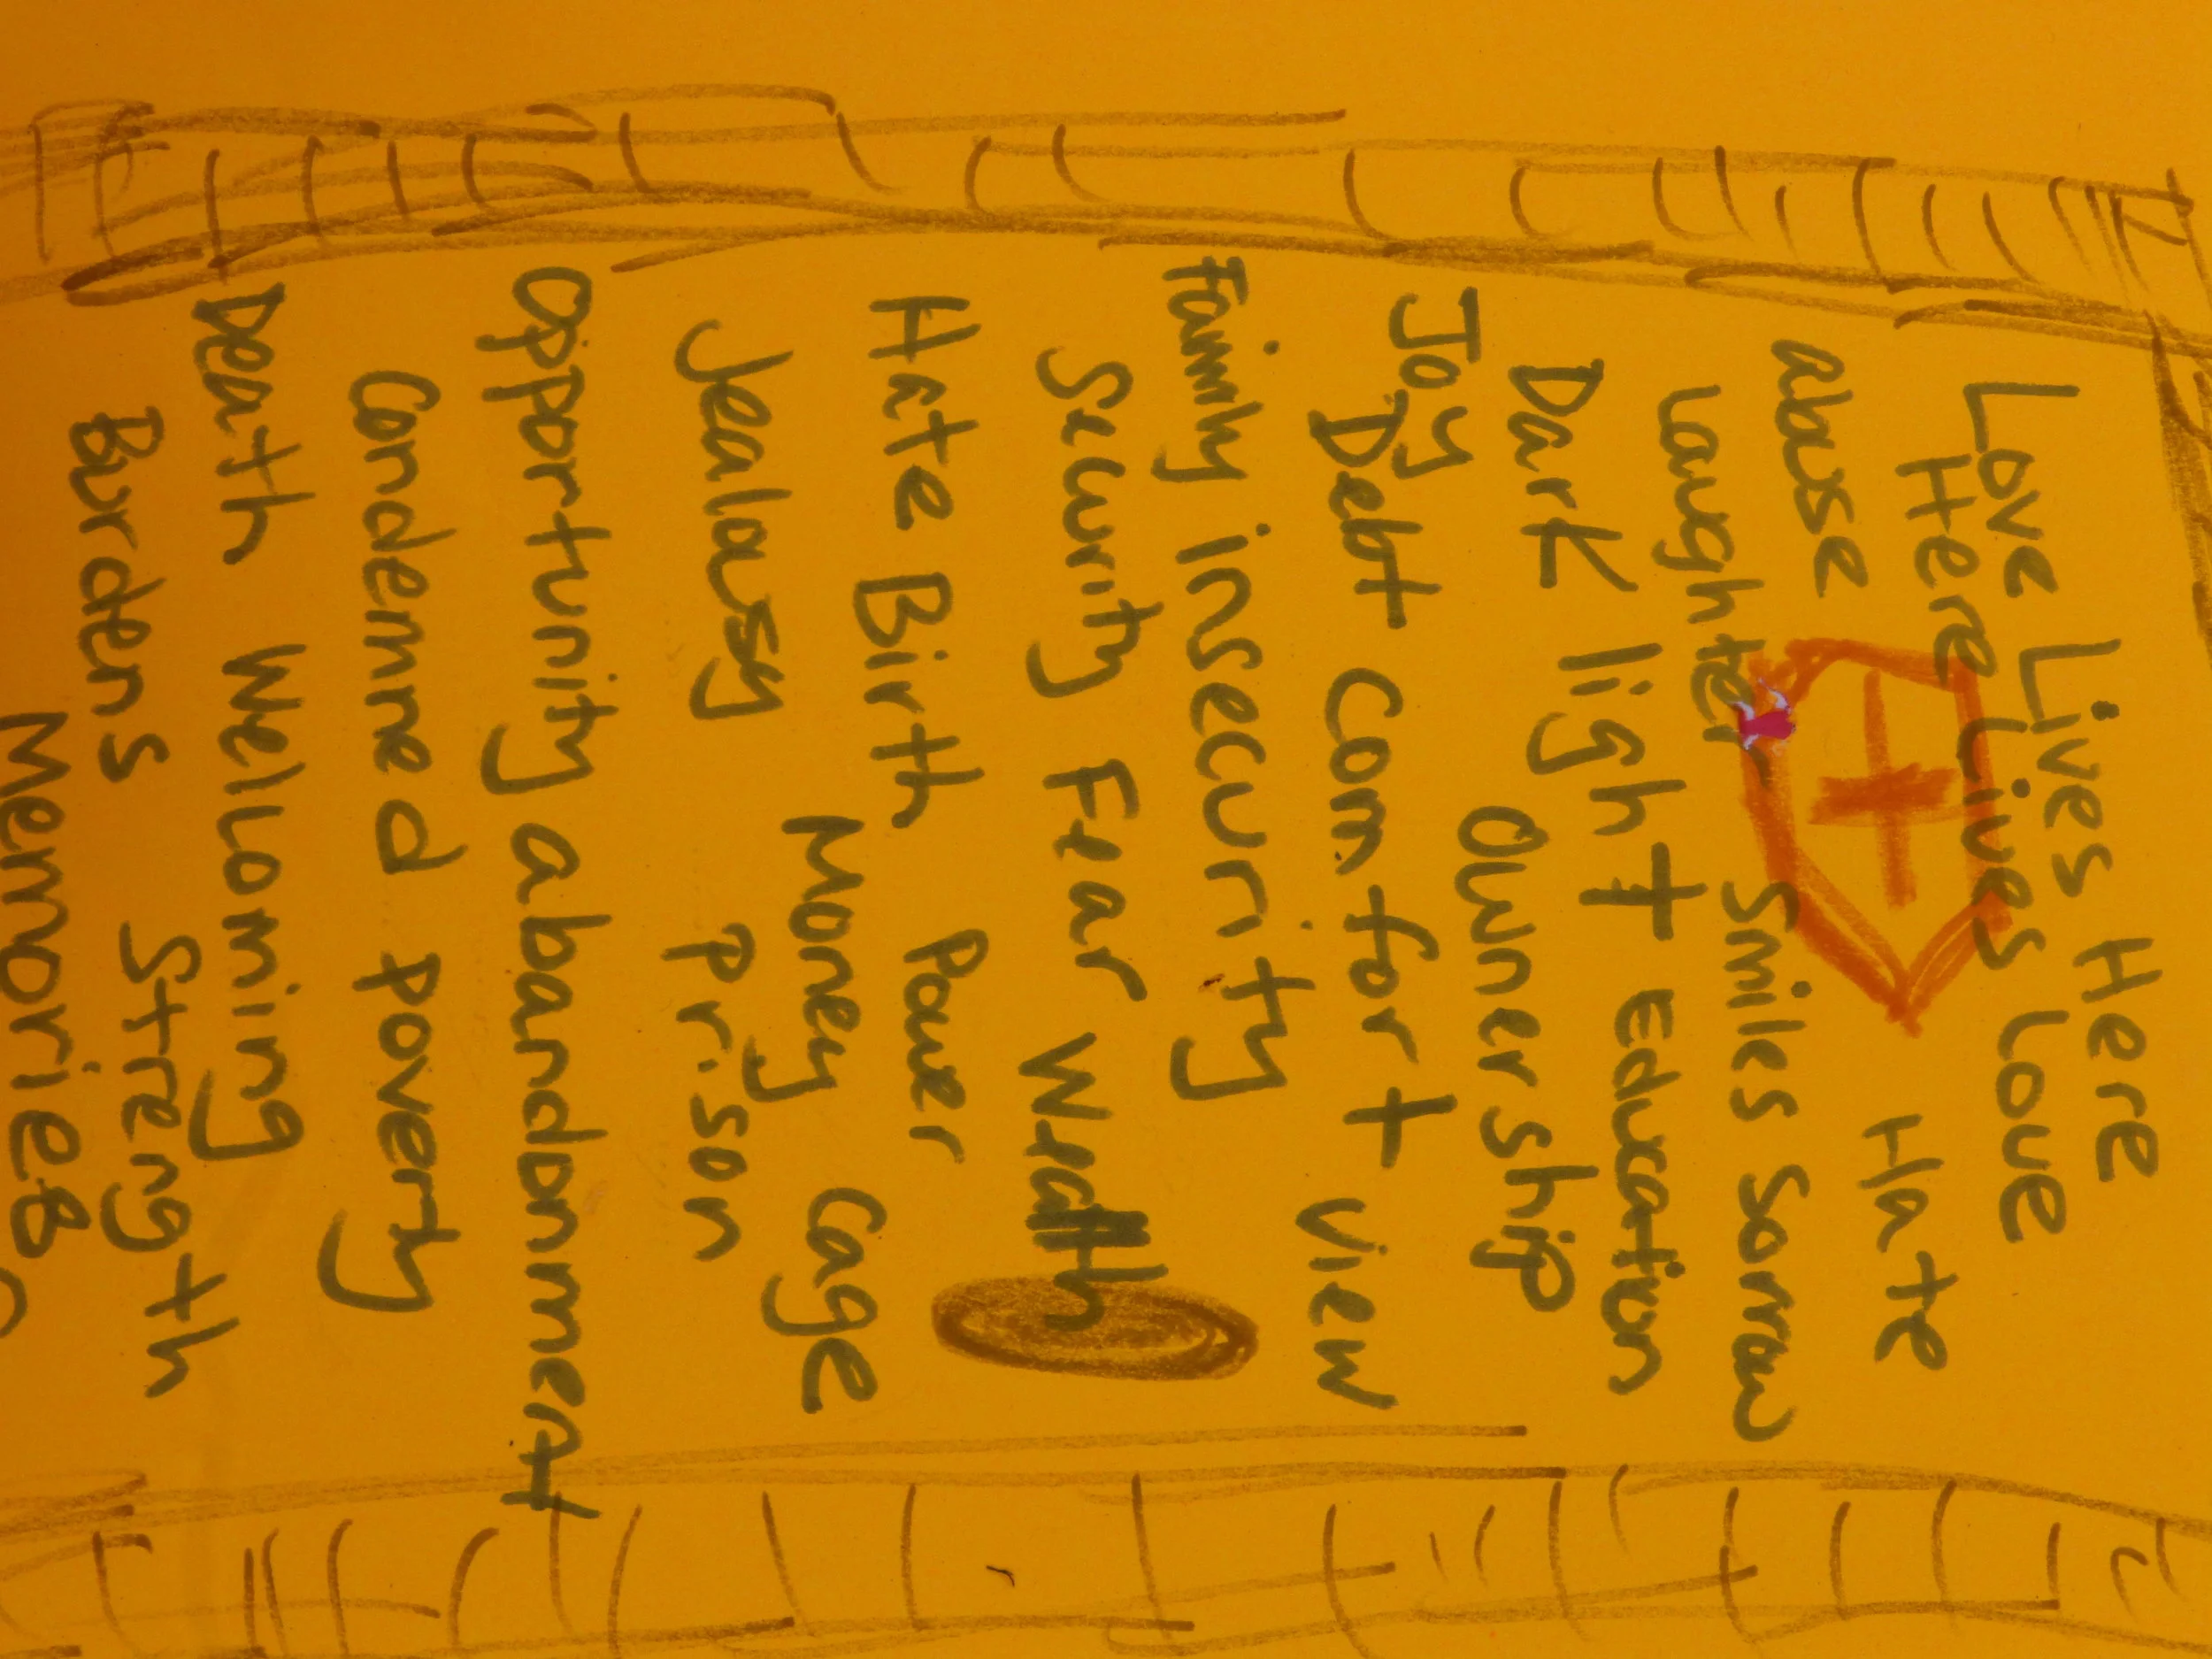 Love Lives Here
Here Lives Love
abuse Hate
Laughter Smiles Sorrow
Dark light Education
Joy Ownership
Debt Comfort View
Family insecurity
Security Fear Wrath
Hate Birth Power
Money Cage
Jealousy Prison
Opportunity abandonment
Condemned Poverty
Death Wellcoming
Burdens Strength
Memories